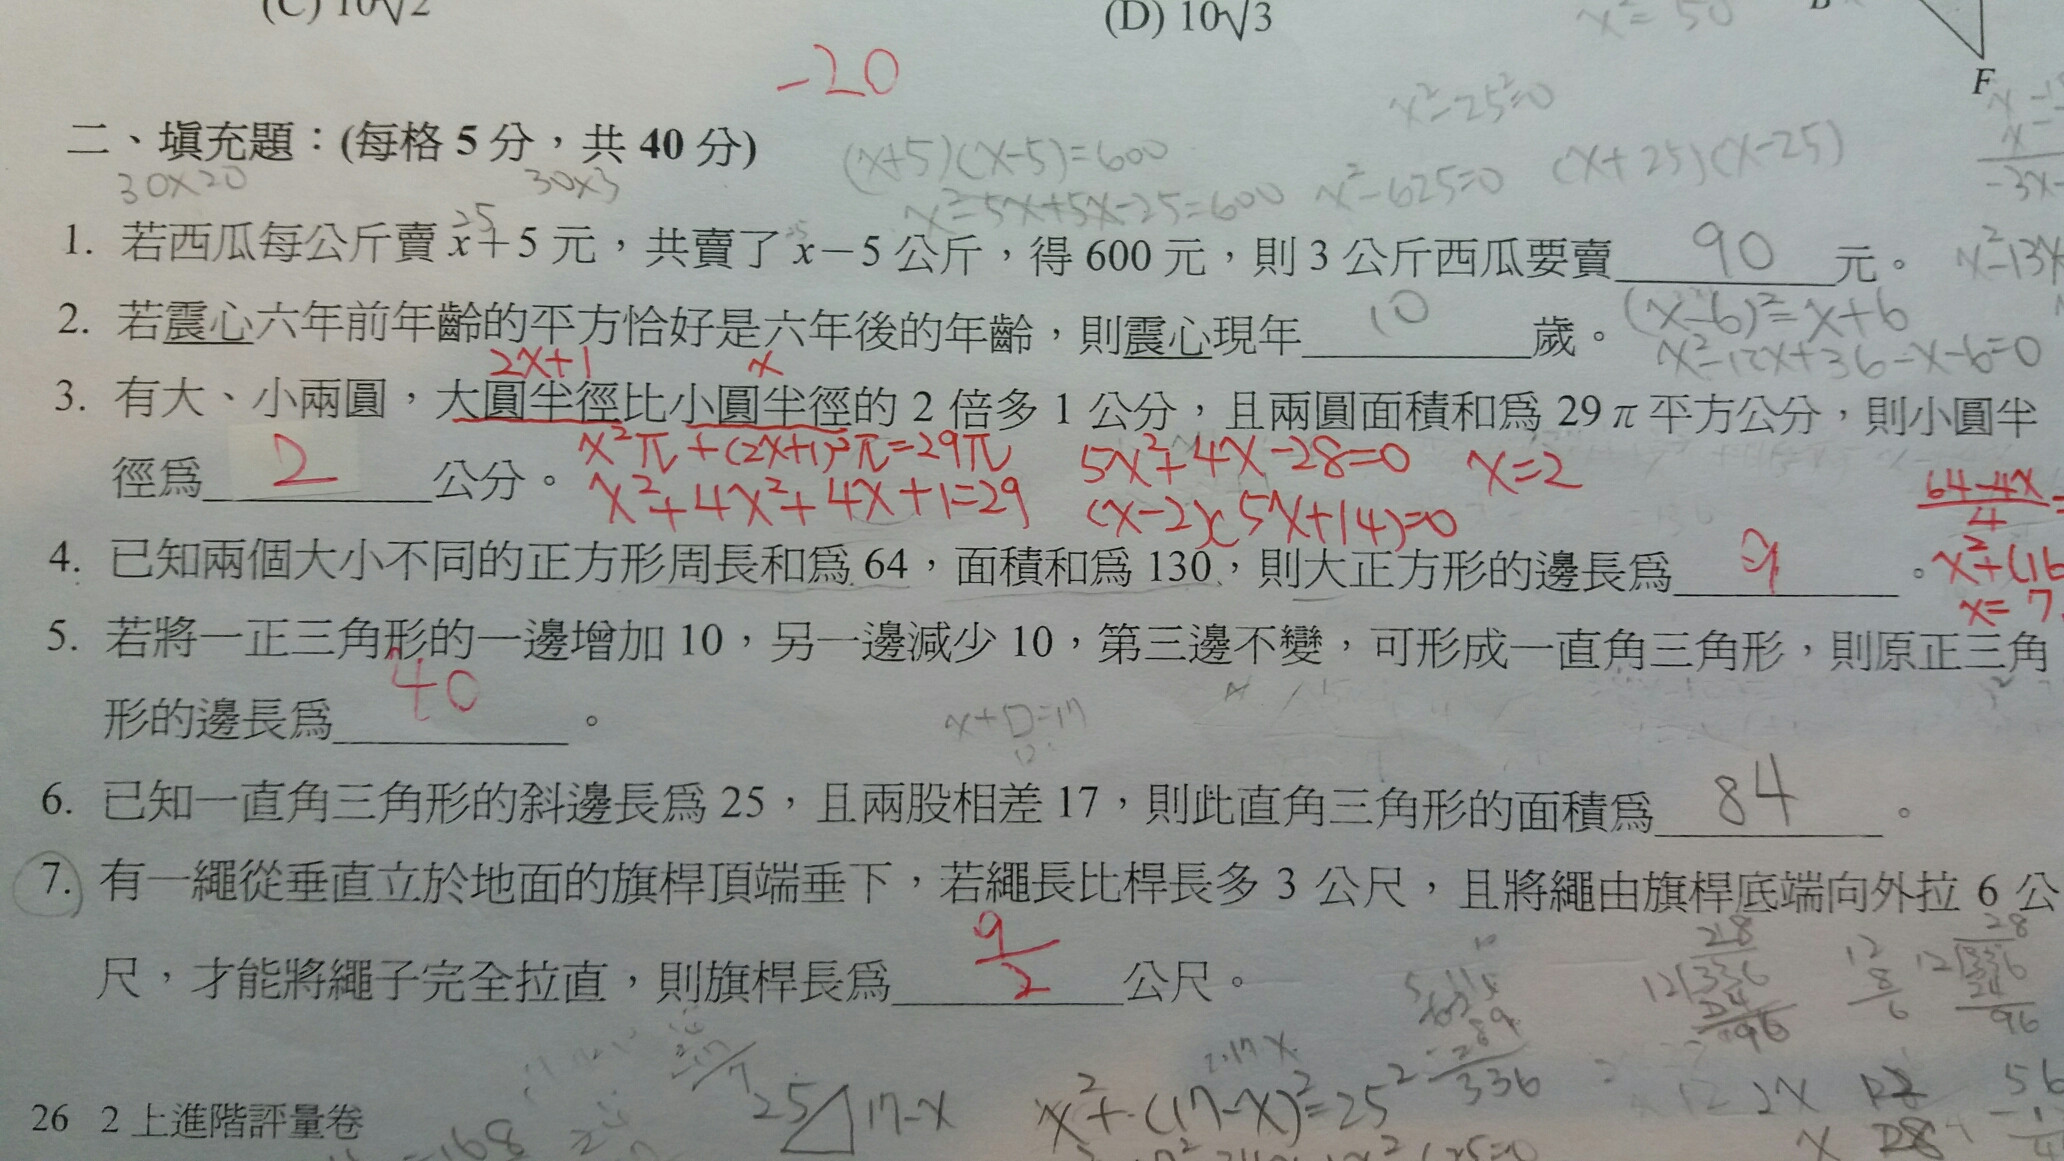 (C) 10√2 (D) 10√3 x²=50
F
-20
x²-25²=0
二、填充題：(每格 5 分，共 40 分)
(x+5)(x-5)=600
30x20 30x3
x²-5x+5x-25=600 x²-625=0 (x+25)(x-25)
25
1. 若西瓜每公斤賣 x+5 元，共賣了 x-5 公斤，得 600 元，則 3 公斤西瓜要賣 90 元。
2. 若震心六年前年齡的平方恰好是六年後的年齡，則震心現年 10 歲。
(x-6)²=x+6
x²-12x+36-x-6=0
2x+1 x
3. 有大、小兩圓，大圓半徑比小圓半徑的 2 倍多 1 公分，且兩圓面積和爲 29π 平方公分，則小圓半
徑爲 2 公分。
x²π+(2x+1)²π=29π 5x²+4x-28=0 x=2
x²+4x²+4x+1=29 (x-2)(5x+14)=0
64-4x
4
4. 已知兩個大小不同的正方形周長和爲 64，面積和爲 130，則大正方形的邊長爲 9 。
x²+(16
x=7
5. 若將一正三角形的一邊增加 10，另一邊減少 10，第三邊不變，可形成一直角三角形，則原正三角
形的邊長爲 40 。
6. 已知一直角三角形的斜邊長爲 25，且兩股相差 17，則此直角三角形的面積爲 84 。
7. 有一繩從垂直立於地面的旗桿頂端垂下，若繩長比桿長多 3 公尺，且將繩由旗桿底端向外拉 6 公
尺，才能將繩子完全拉直，則旗桿長爲 9/2 公尺。
28
12 336
24
96
28
12 336
24
96
336
25 17-x x²+(17-x)²=25²
26 2 上進階評量卷